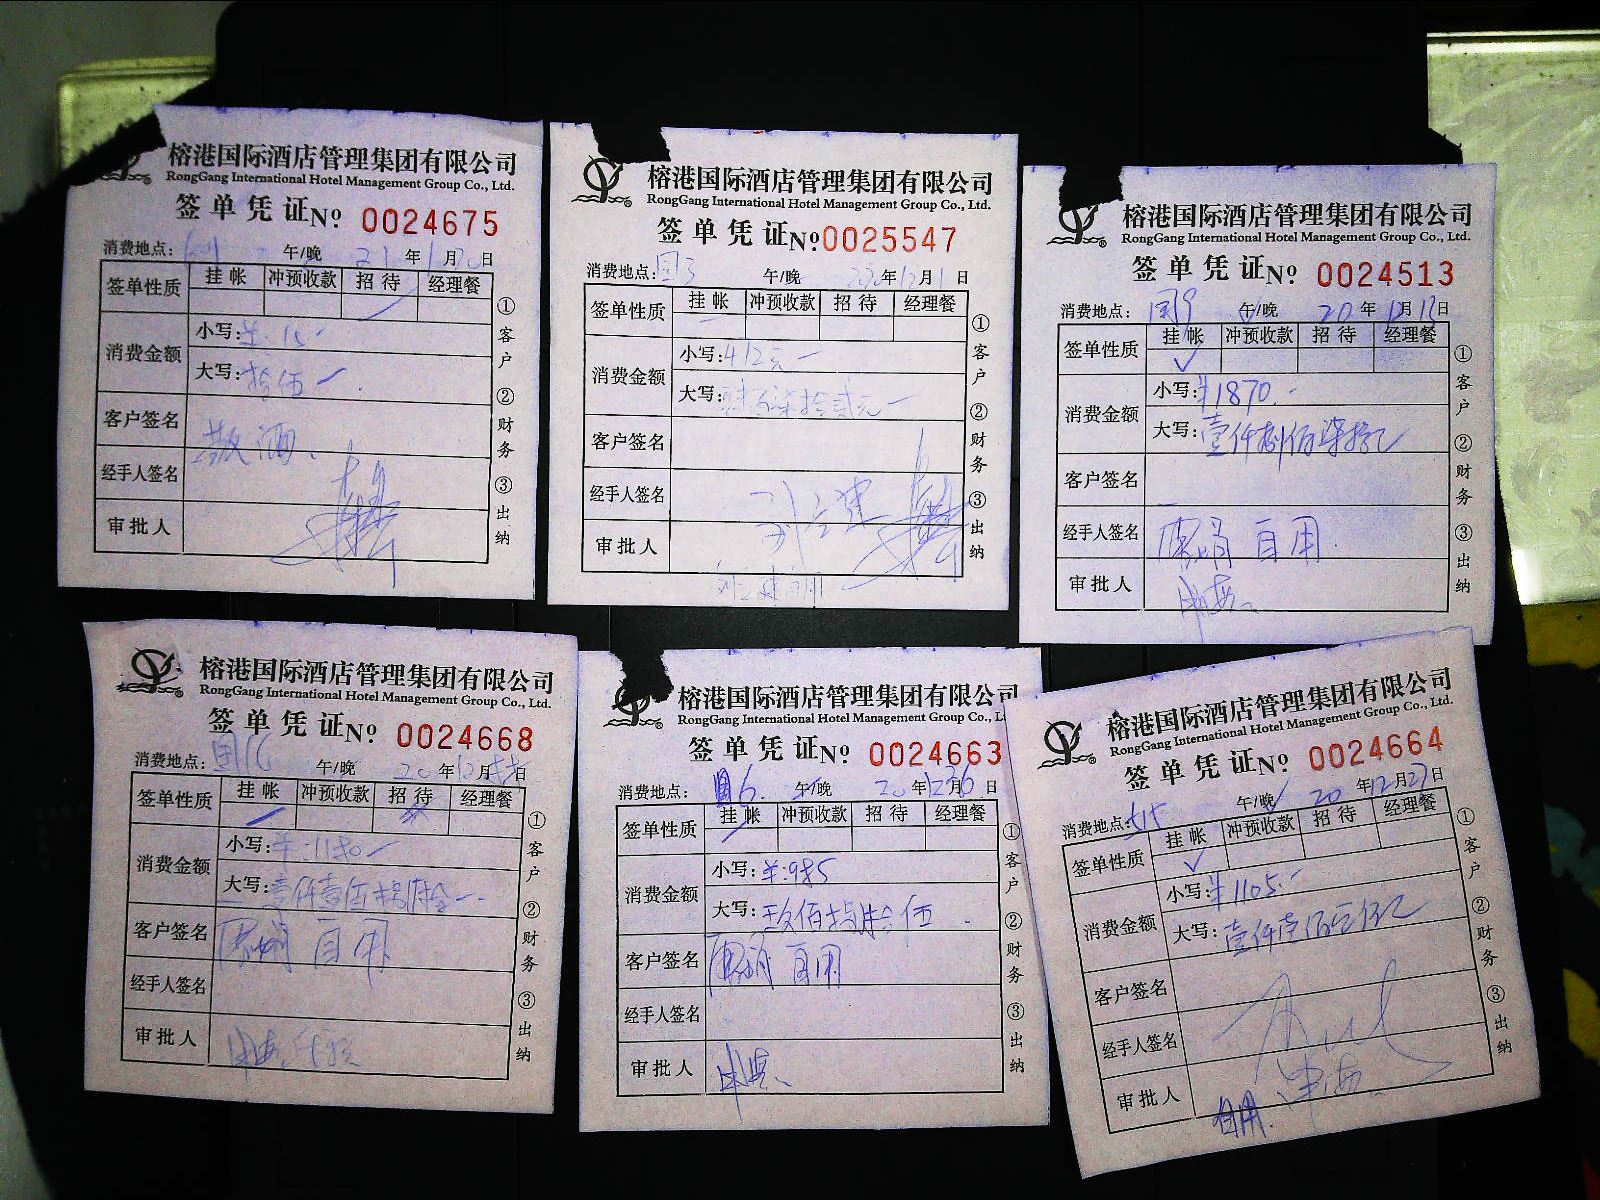 榕港国际酒店管理集团有限公司
RongGang International Hotel Management Group Co., Ltd.
签单凭证 No 0024675
消费地点: 午/晚 21 年 1 月 日
签单性质 挂帐 冲预收款 招待 经理餐
消费金额 小写: 15
大写: 拾伍
客户签名 散酒
经手人签名
审批人
①客户 ②财务 ③出纳
榕港国际酒店管理集团有限公司
RongGang International Hotel Management Group Co., Ltd.
签单凭证 No 0025547
消费地点: 午/晚 年 12 月 1 日
签单性质 挂帐 冲预收款 招待 经理餐
消费金额 小写: 412元
大写:
客户签名
经手人签名
审批人
①客户 ②财务 ③出纳
榕港国际酒店管理集团有限公司
RongGang International Hotel Management Group Co., Ltd.
签单凭证 No 0024513
消费地点: 午/晚 20 年 12 月 日
签单性质 挂帐 冲预收款 招待 经理餐
消费金额 小写: ¥1870.-
大写: 壹仟捌佰柒拾
客户签名
经手人签名 自用
审批人
①客户 ②财务 ③出纳
榕港国际酒店管理集团有限公司
RongGang International Hotel Management Group Co., Ltd.
签单凭证 No 0024668
消费地点: 午/晚 20 年 12 月 日
签单性质 挂帐 冲预收款 招待 经理餐
消费金额 小写: 1180
大写: 壹仟壹佰捌拾
客户签名 自用
经手人签名
审批人
①客户 ②财务 ③出纳
榕港国际酒店管理集团有限公司
RongGang International Hotel Management Group Co., L
签单凭证 No 0024663
消费地点: 午/晚 20 年 12 月 26 日
签单性质 挂帐 冲预收款 招待 经理餐
消费金额 小写: 985
大写: 玖佰捌拾伍
客户签名 自用
经手人签名
审批人
①客户 ②财务 ③出纳
榕港国际酒店管理集团有限公司
RongGang International Hotel Management Group Co., Ltd.
签单凭证 No 0024664
消费地点: 午/晚 20 年 12 月 27 日
签单性质 挂帐 冲预收款 招待 经理餐
消费金额 小写: ¥1105.-
大写: 壹仟壹佰零伍
客户签名
经手人签名
审批人 自用
①客户 ②财务 ③出纳